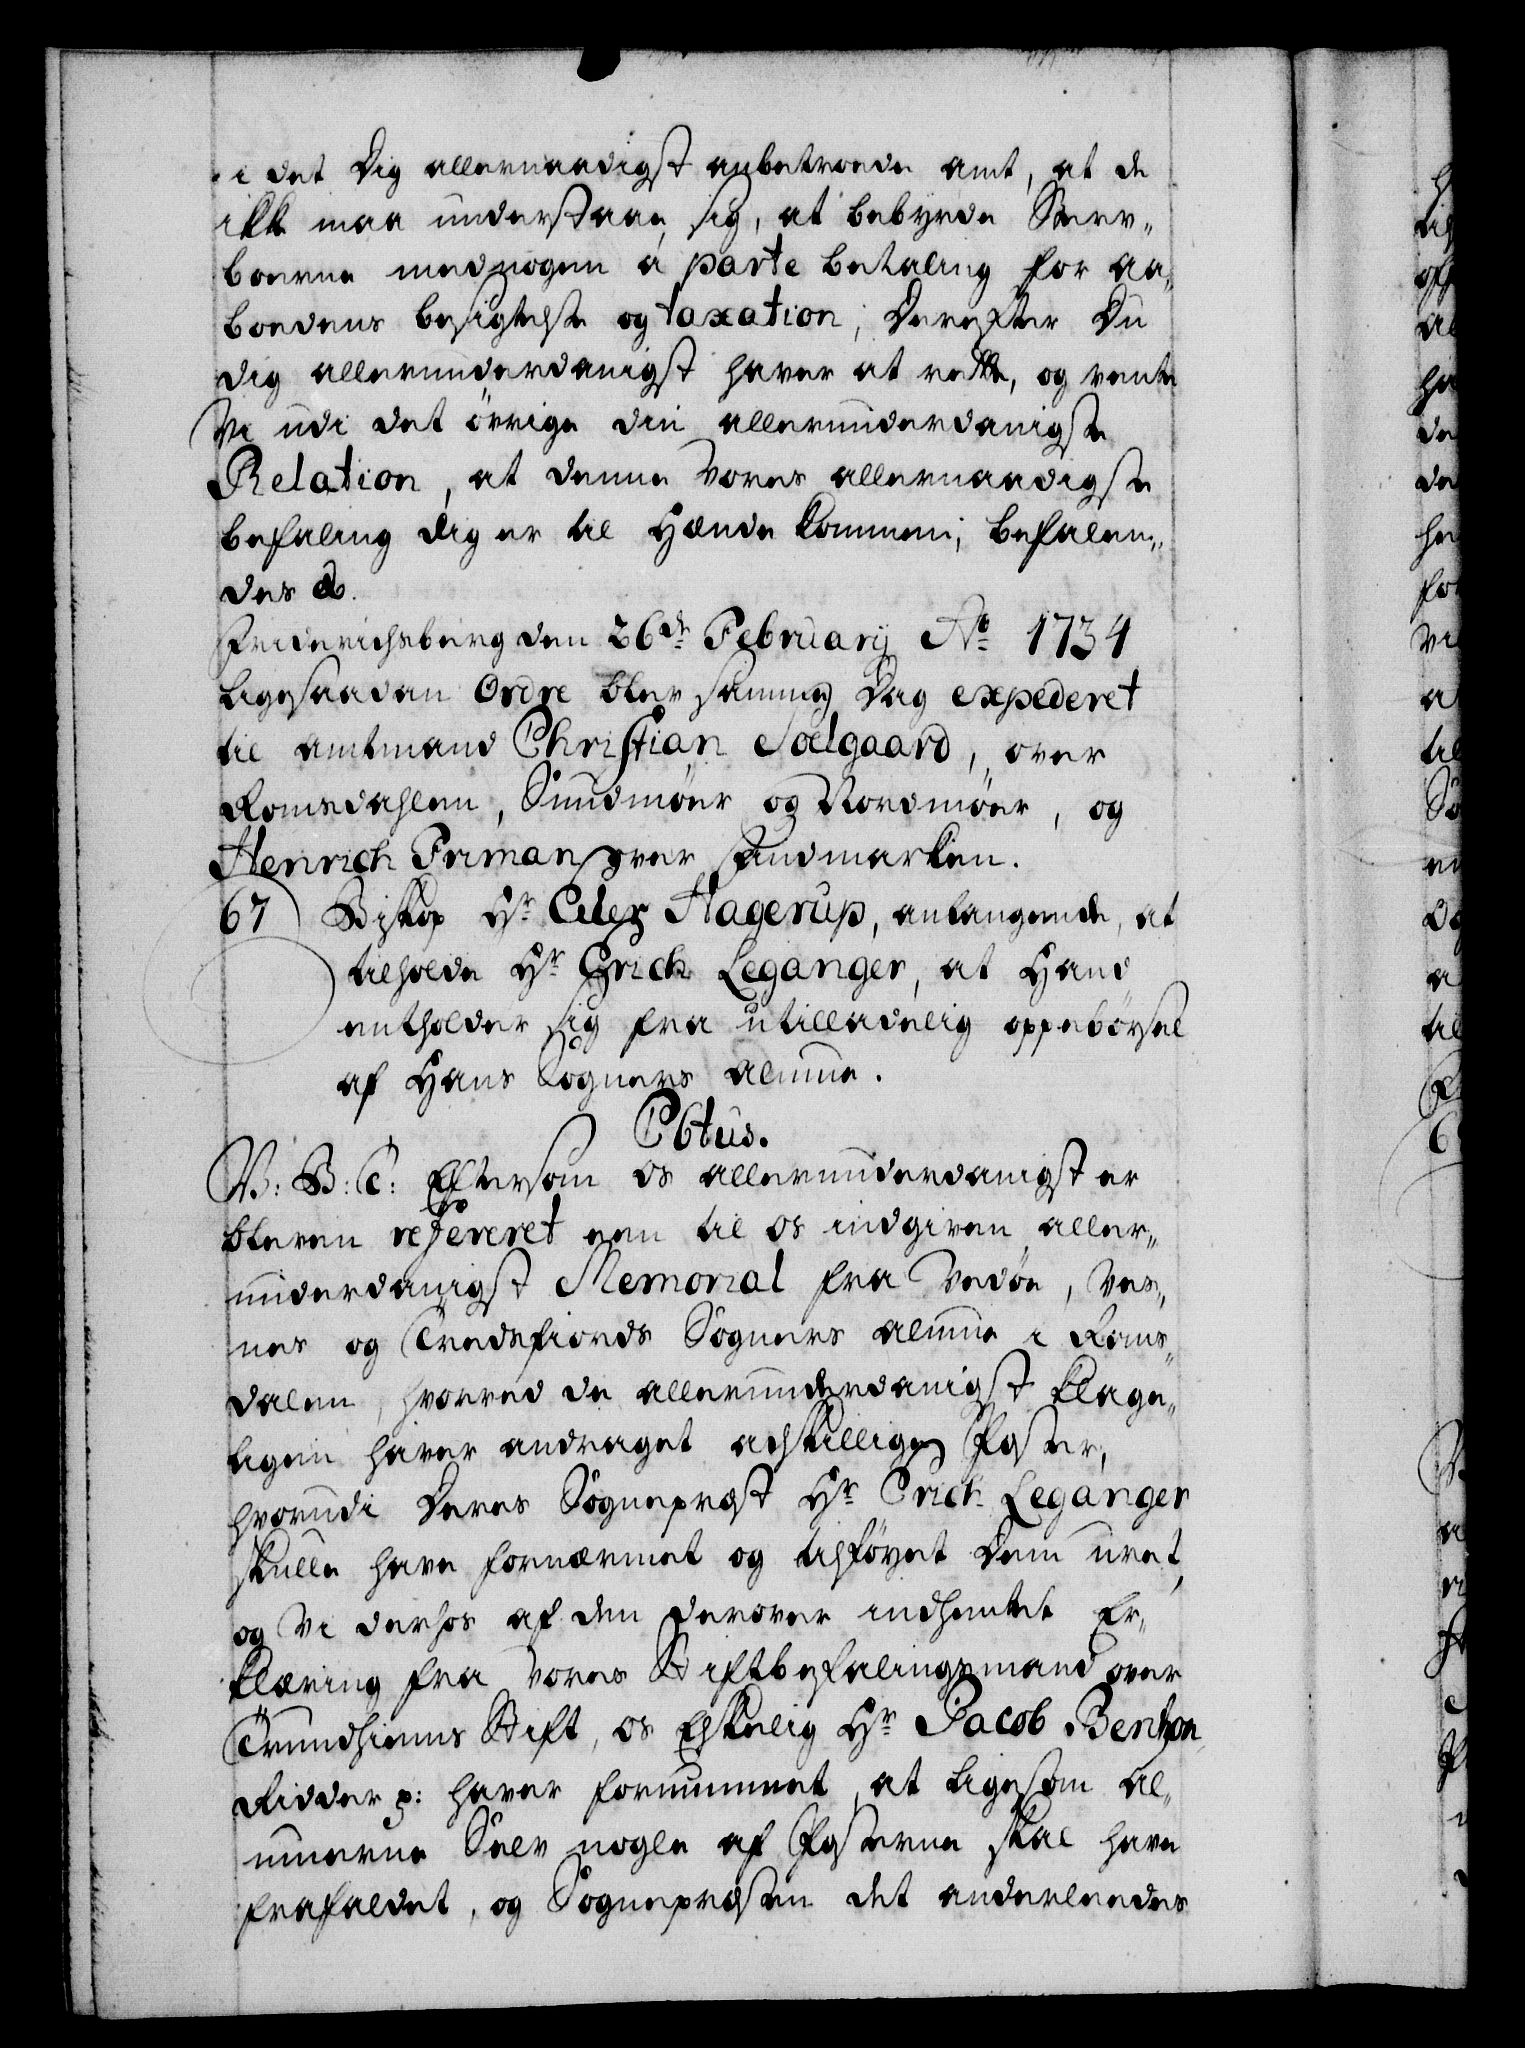 i det Dig allernaadigst anbetroede amt, at de
ikke maa understaae sig, at bebyrde Sterv„
boerne med nogen á parte betaling for aa„
boedens besigtelse og taxation, Derefter Du
dig allerunderdanigst haver at rette, og vente
Vi udi det övrige din allerunderdanigste
Relation, at denne Vores allernaadigste
befaling dig er til Hænde kommen; befalen„
des &.
Friderichsberg den 26de February Ao 1734
Ligesaadan Ordre blev samme Dag expederet
til amtmand Christian Soelgaard, over
Romsdahlen, Sundmöer og Nordmöer, og
Henrich Friman over Findmarken.
67 Biskop Hr Eiler Hagerup, anlangende, at
tilholde Hr Erich Leganger, at Hand
entholder sig fra utilladelig oppebörsel
af Hans Sogners almue.
C6tus.
V: G: T: Eftersom os allerunderdanigst er
bleven refereret een til os indgiven aller„
underdanigst Memorial fra Vedöe, Ves„
nes og Tredsfiords Sogners almue i Roms„
dalen, hvorved de allerunderdanigst klage„
ligen haver andraget adskillige Poster,
hvorudi Deres Sognepræst Hr Erich Leganger
skulle have fornærmet og tilföyet Dem uret,
og Vi derhos af den derover indhentet Er„
klæring fra Vores Stiftbefalingsmand over
Trundhiems Stift, os Elskelig Hr Jacob Bentzon,
Ridder p: haver fornummet, at ligesom al„
muerne Selv nogle af Posterne skal have
frafaldet, og Sognepræsten det anderleedes